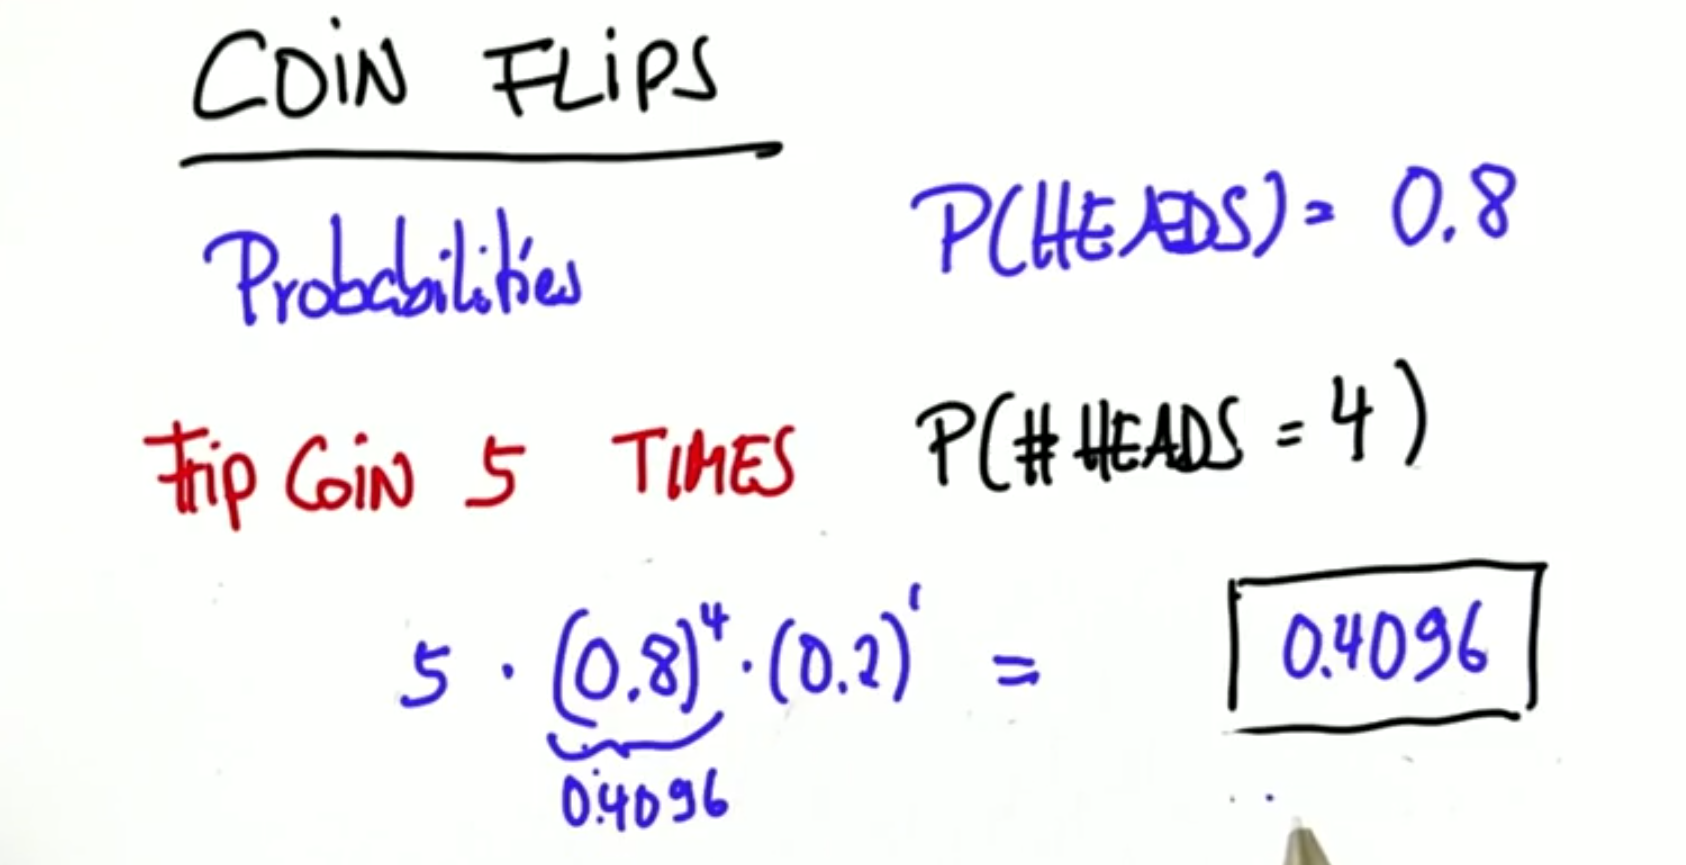 COIN FLIPS
Probabilities
P(HEADS) = 0.8
Flip COIN 5 TIMES
P(# HEADS = 4)
5 · (0.8)⁴ · (0.2)¹ = 0.4096
0.4096